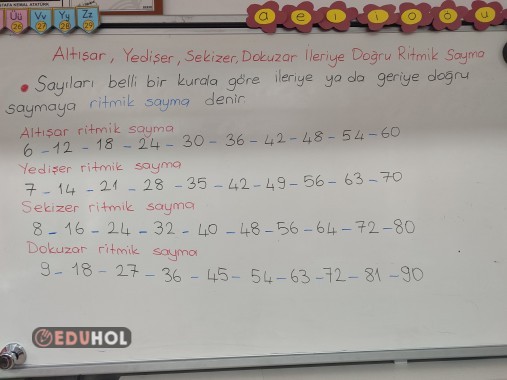 Üü Vv Yy Zz
26 27 28 29
a e ı i o ö u
Altışar, Yedişer, Sekizer, Dokuzar İleriye Doğru Ritmik Sayma
• Sayıları belli bir kurala göre ileriye ya da geriye doğru
saymaya ritmik sayma denir.
Altışar ritmik sayma
6 - 12 - 18 - 24 - 30 - 36 - 42 - 48 - 54 - 60
Yedişer ritmik sayma
7 - 14 - 21 - 28 - 35 - 42 - 49 - 56 - 63 - 70
Sekizer ritmik sayma
8 - 16 - 24 - 32 - 40 - 48 - 56 - 64 - 72 - 80
Dokuzar ritmik sayma
9 - 18 - 27 - 36 - 45 - 54 - 63 - 72 - 81 - 90
EDUHOL